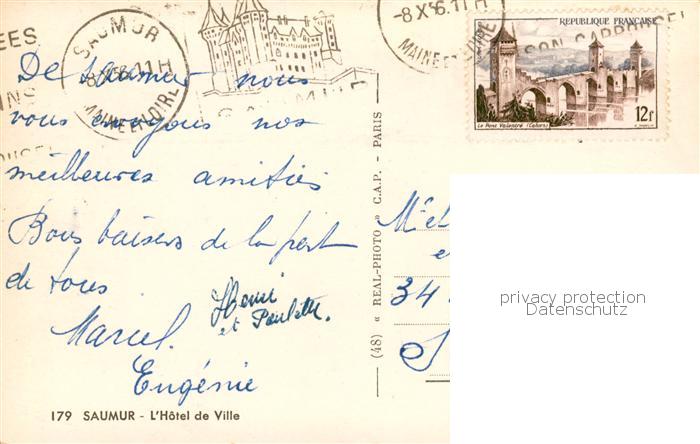 SAUMUR
8 X 56.11H
MAINE ET LOIRE
-8 X 56.11H
MAINE ET LOIRE
SON CARROUSEL
REPUBLIQUE FRANÇAISE
12f
Le Pont Valentré (Cahors)
De Saumur nous
vous envoyons nos
meilleures amitiés
Bons baisers de la part
de tous
Henri
et Paulette.
Marcel
Eugénie
(48) « REAL-PHOTO » C.A.P. - PARIS
M et
e
34
S
privacy protection
Datenschutz
179 SAUMUR - L'Hôtel de Ville